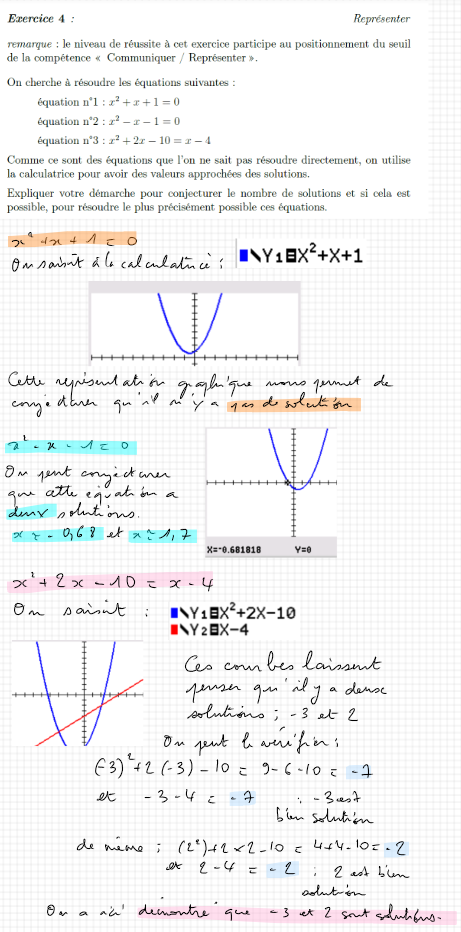 Exercice 4 :
Représenter
remarque : le niveau de réussite à cet exercice participe au positionnement du seuil
de la compétence « Communiquer / Représenter ».
On cherche à résoudre les équations suivantes :
équation n°1 : x² + x + 1 = 0
équation n°2 : x² − x − 1 = 0
équation n°3 : x² + 2x − 10 = x − 4
Comme ce sont des équations que l'on ne sait pas résoudre directement, on utilise
la calculatrice pour avoir des valeurs approchées des solutions.
Expliquer votre démarche pour conjecturer le nombre de solutions et si cela est
possible, pour résoudre le plus précisément possible ces équations.
x² + x + 1 = 0
On saisit à la calculatrice :
\Y1=X²+X+1
Cette représentation graphique nous permet de
conjecturer qu'il n'y a pas de solution
x² - x - 1 = 0
On peut conjecturer
que cette équation a
deux solutions.
x ≃ - 0,68 et x ≃ 1,7
X=-0.681818 Y=0
x² + 2x - 10 = x - 4
On saisit :
\Y1=X²+2X-10
\Y2=X-4
Ces courbes laissent
penser qu'il y a deux
solutions ; -3 et 2
On peut le vérifier ;
(-3)² + 2 (-3) - 10 = 9 - 6 - 10 = -7
et - 3 - 4 = - 7 ; -3 est
bien solution
de même ; (2²) + 2 × 2 - 10 = 4 + 4 - 10 = - 2
et 2 - 4 = - 2 ; 2 est bien
solution
On a ici démontré que -3 et 2 sont solutions.